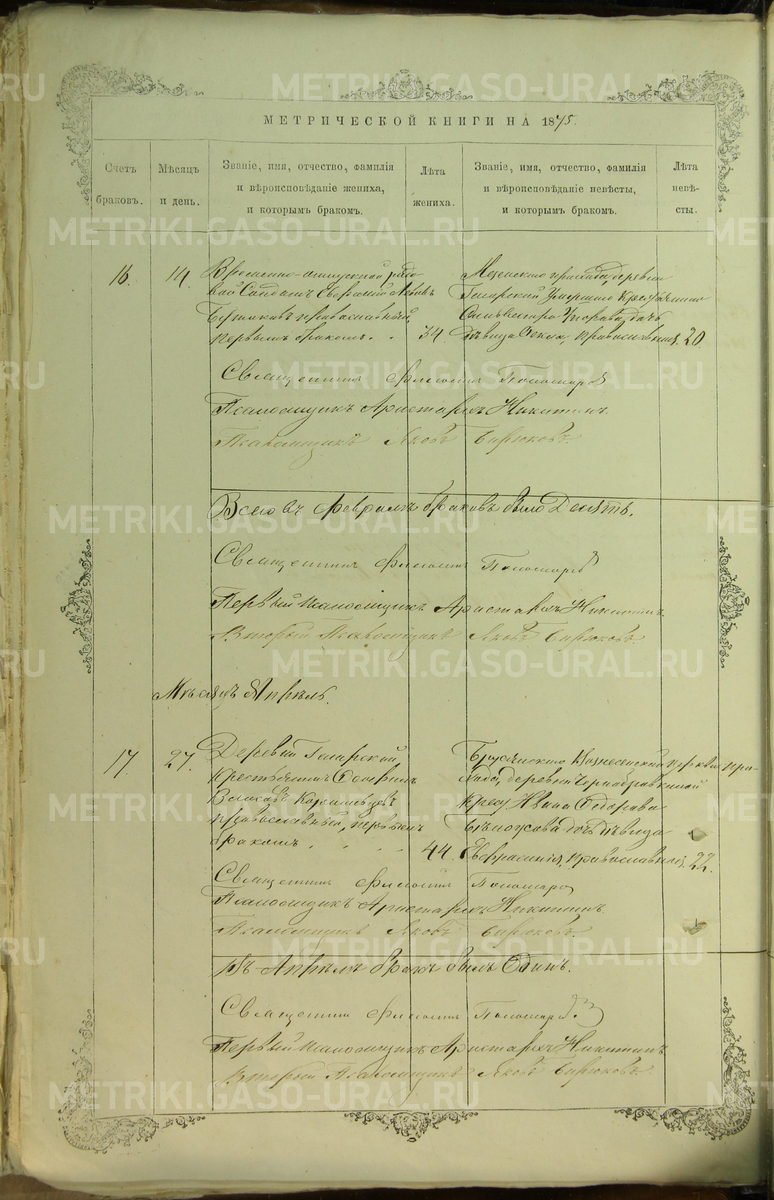 МЕТРИЧЕСКОЙ КНИГИ НА 1875.
Счетъ браковъ.
Мѣсяцъ и день.
Званіе, имя, отчество, фамилія
и вѣроисповѣданіе жениха,
и которымъ бракомъ.
Лѣта жениха.
Званіе, имя, отчество, фамилія
и вѣроисповѣданіе невѣсты,
и которымъ бракомъ.
Лѣта невѣ-
сты.
16.
14.
Временно-отпускной рядо
вой
православный,
первымъ бракомъ. . 34.
прихода, деревни
Гагарской
дочь
дѣвица православная, 20
Священникъ Пономаревъ
Псаломщикъ Аристархъ Никитинъ
Псаломщикъ Яковъ Бирюковъ.
Всего въ Февралѣ браковъ было Девять.
Священникъ Пономаревъ
Первый Псаломщикъ Аристархъ Никитинъ.
Вторый Псаломщикъ Яковъ Бирюковъ.
Мѣсяцъ Апрѣль.
17.
27.
Деревни Гагарской
крестьянинъ
православный, первымъ
бракомъ . . . 44.
Вознесенской церкви при-
хода, деревни
крест. Ивана Ѳедорова
Бѣлоусова дочь дѣвица
Евфросинія, православная, 22.
Священникъ Пономаревъ
Псаломщикъ Аристархъ Никитинъ.
Псаломщикъ Яковъ Бирюковъ.
Въ Апрѣлѣ бракъ былъ Одинъ.
Священникъ Пономаревъ
Первый Псаломщикъ Аристархъ Никитинъ
Вторый Псаломщикъ Яковъ Бирюковъ.
METRIKI.GASO-URAL.RU